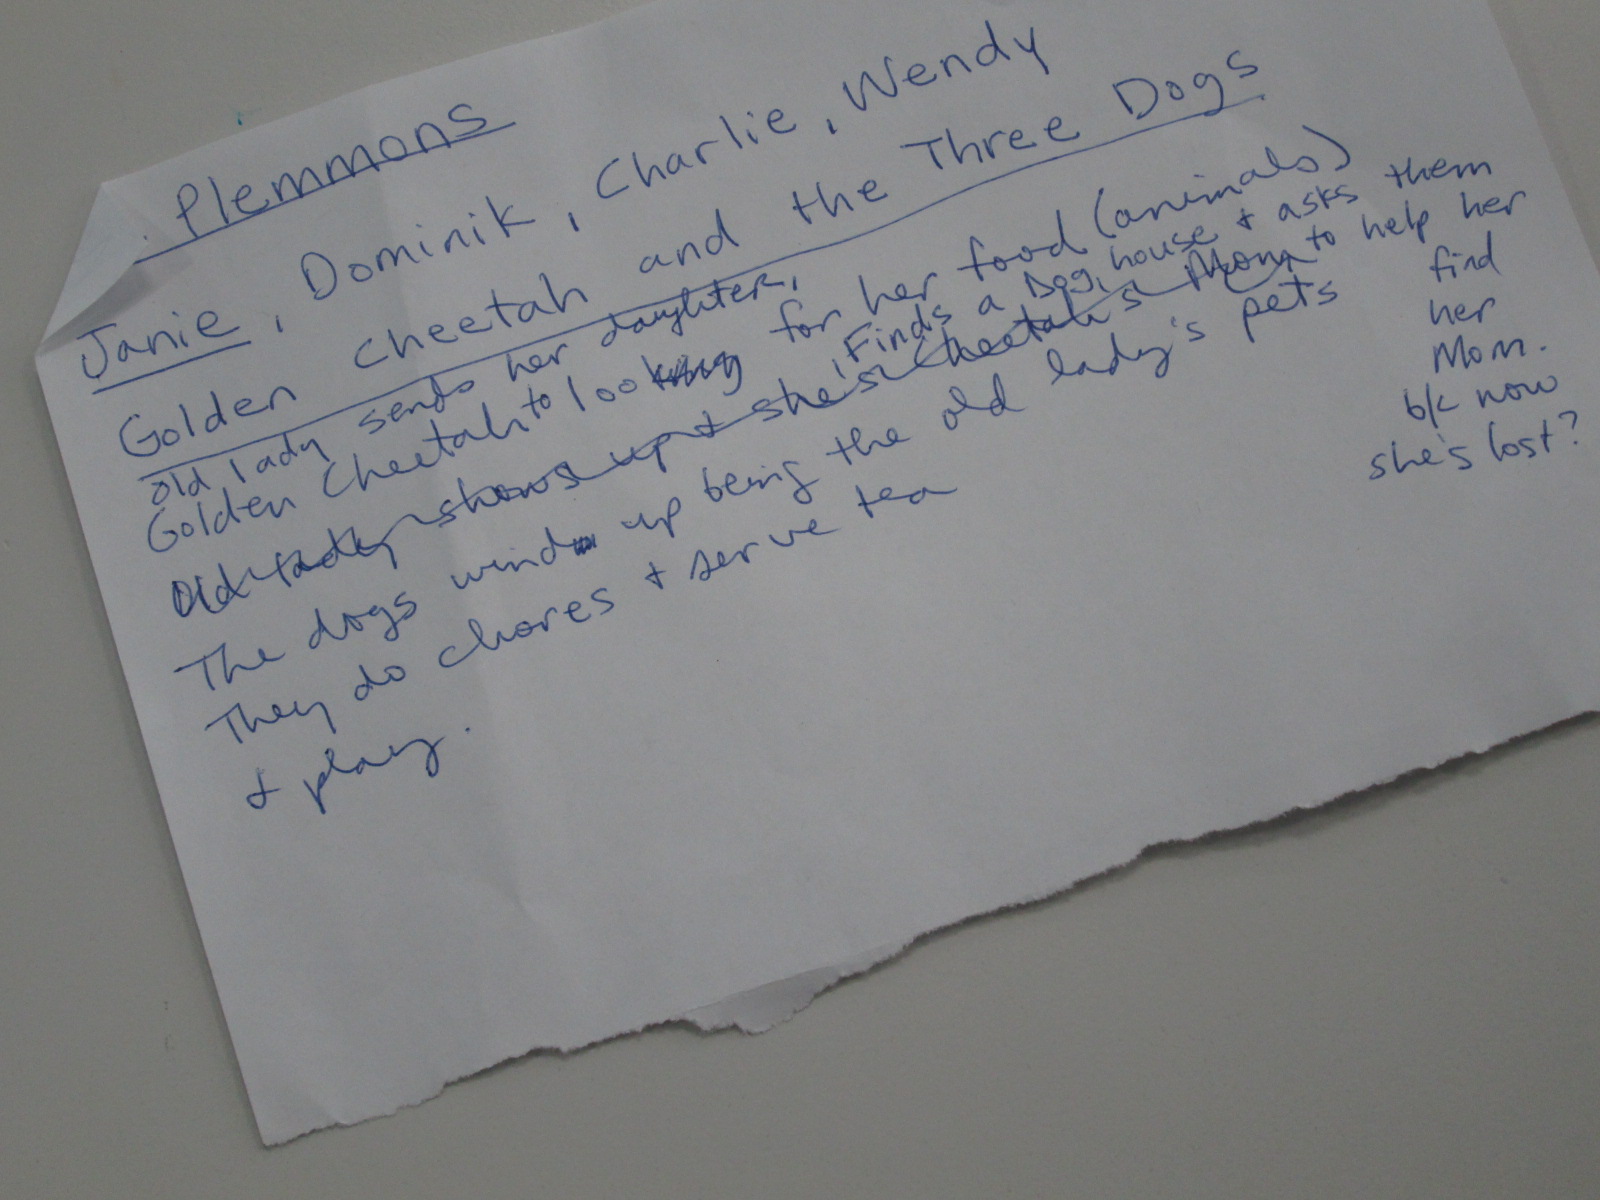 Plemmons
Janie, Dominik, Charlie, Wendy
Golden Cheetah and the Three Dogs
old lady sends her daughter,
Golden Cheetah to look for her food (animals)
, Finds a Dog house & asks them
to help her
find
her
Mom.
b/c now
she's lost?
Old lady shows up & she's Cheetah's Mom
The dogs wind up being the old lady's pets
They do chores & serve tea
& play.